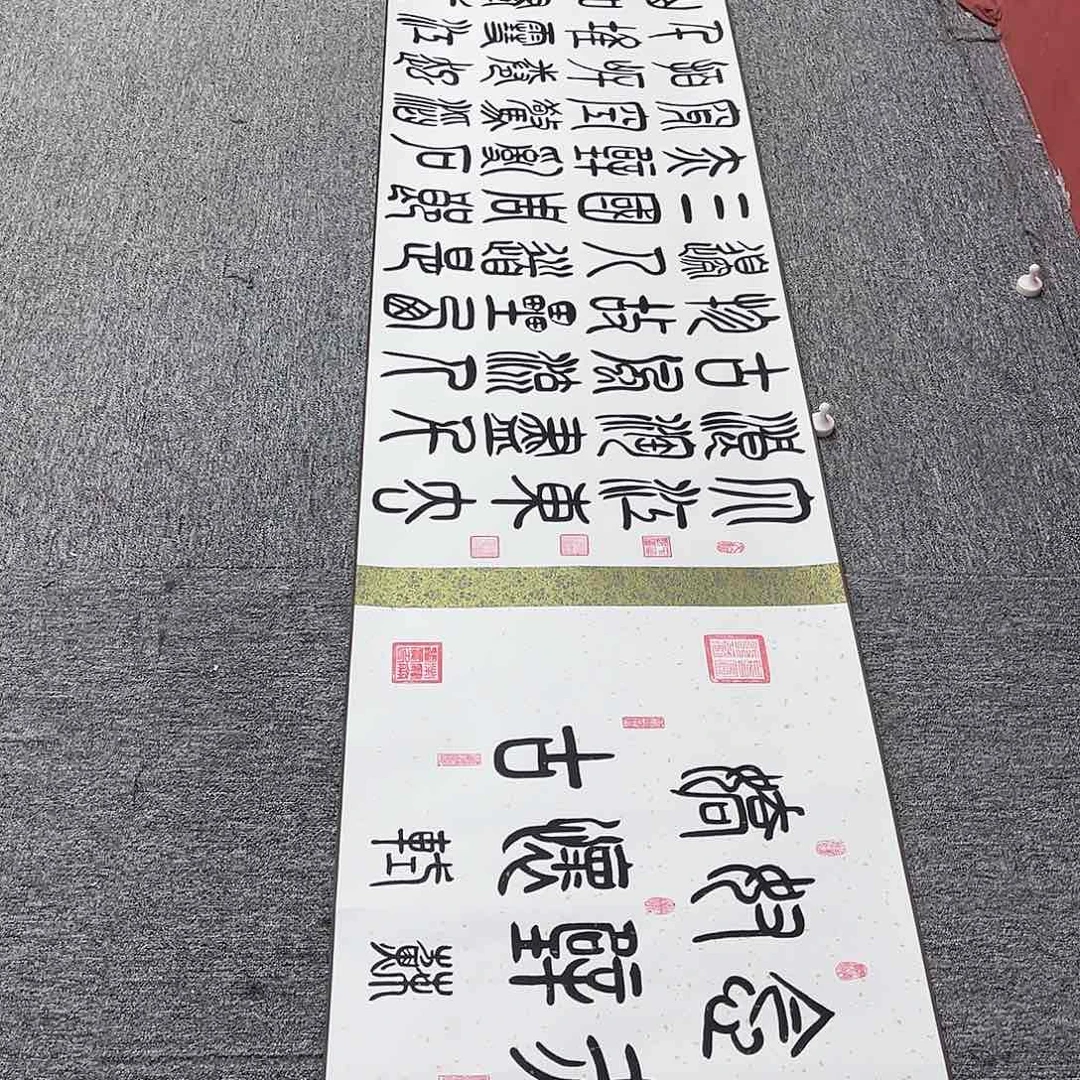 念奴嬌
赤壁懷古
蘇軾
大江東去
浪淘盡千
古風流人
物故壘西
邊人道是
三國周郎
赤壁亂石
穿空驚濤
拍岸捲起
千堆雪江